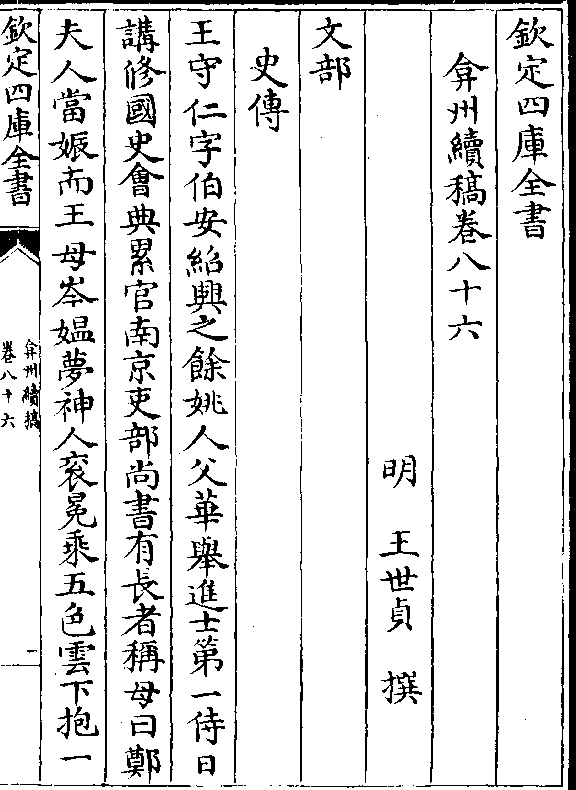 欽定四庫全書
弇州續稿卷八十六
明 王世貞 撰
文部
史傳
王守仁字伯安紹興之餘姚人父華舉進士第一侍日
講修國史會典累官南京吏部尚書有長者稱母曰鄭
夫人當娠而王母岑媪夢神人衮冕乘五色雲下抱一
欽定四庫全書
弇州續稿
卷八十六
一